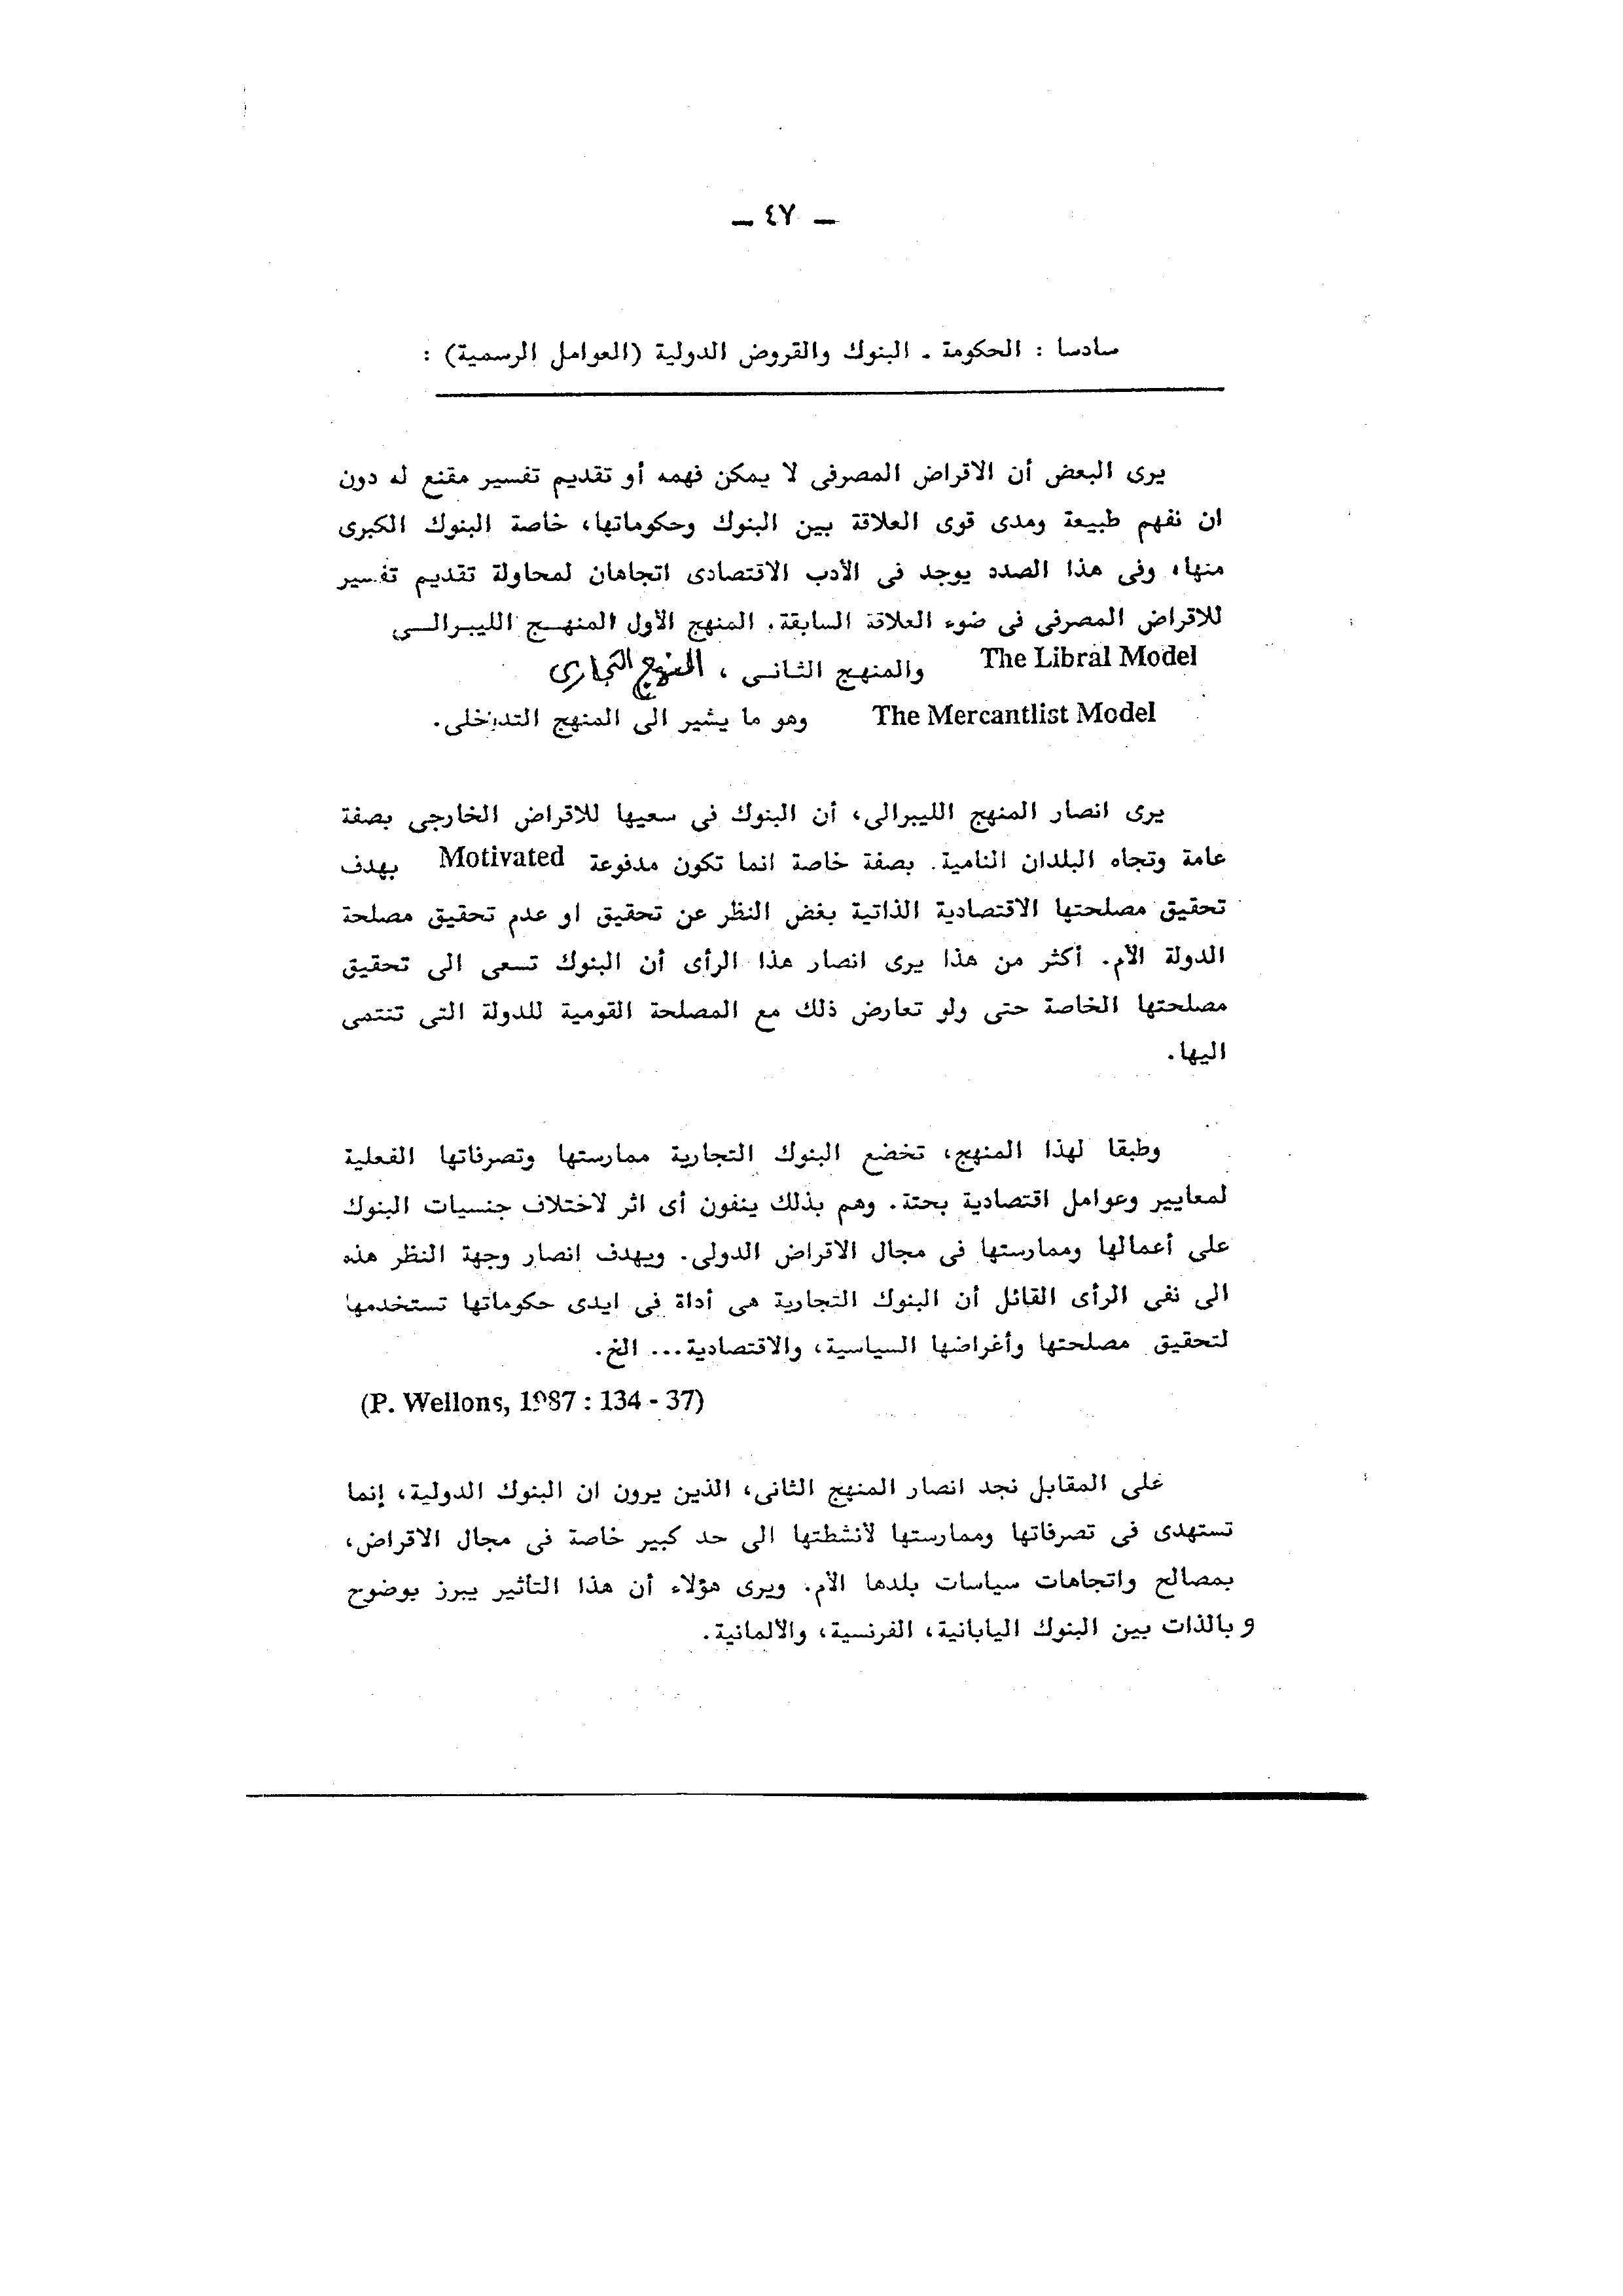 ـ ٤٧ ـ
سادسا : الحكومة . البنوك والقروض الدولية (العوامل الرسمية) :
يرى البعض أن الاقراض المصرفى لا يمكن فهمه أو تقديم تفسير مقنع له دون
ان نفهم طبيعة ومدى قوى العلاقة بين البنوك وحكوماتها، خاصة البنوك الكبرى
منها، وفى هذا الصدد يوجد فى الأدب الاقتصادى اتجاهان لمحاولة تقديم تفسير
للاقراض المصرفى فى ضوء العلاقة السابقة. المنهج الأول المنهـج الليبـرالـى
The Libral Model والمنهج الثانـى ، المنهج التجارى
The Mercantlist Model وهو ما يشير الى المنهج التدخلى.
يرى انصار المنهج الليبرالى، أن البنوك فى سعيها للاقراض الخارجى بصفة
عامة وتجاه البلدان النامية. بصفة خاصة انما تكون مدفوعة Motivated بهدف
تحقيق مصلحتها الاقتصادية الذاتية بغض النظر عن تحقيق او عدم تحقيق مصلحة
الدولة الأم. أكثر من هذا يرى انصار هذا الرأى أن البنوك تسعى الى تحقيق
مصلحتها الخاصة حتى ولو تعارض ذلك مع المصلحة القومية للدولة التى تنتمى
اليها.
وطبقا لهذا المنهج، تخضع البنوك التجارية ممارستها وتصرفاتها الفعلية
لمعايير وعوامل اقتصادية بحتة. وهم بذلك ينفون أى اثر لاختلاف جنسيات البنوك
على أعمالها وممارستها فى مجال الاقراض الدولى. ويهدف انصار وجهة النظر هذه
الى نفى الرأى القائل أن البنوك التجارية هى أداة فى ايدى حكوماتها تستخدمها
لتحقيق مصلحتها وأغراضها السياسية، والاقتصادية... الخ.
(P. Wellons, 1987 : 134 - 37)
على المقابل نجد انصار المنهج الثانى، الذين يرون ان البنوك الدولية، إنما
تستهدى فى تصرفاتها وممارستها لأنشطتها الى حد كبير خاصة فى مجال الاقراض،
بمصالح واتجاهات سياسات بلدها الأم. ويرى هؤلاء أن هذا التأثير يبرز بوضوح
و بالذات بين البنوك اليابانية، الفرنسية، والألمانية.